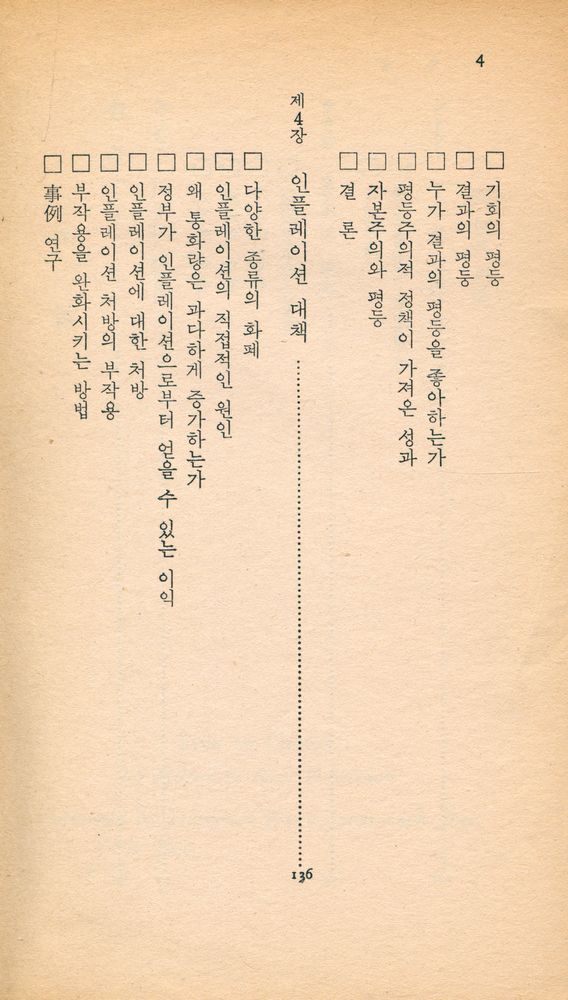 4
□ 기회의 평등
□ 결과의 평등
□ 누가 결과의 평등을 좋아하는가
□ 평등주의적 정책이 가져온 성과
□ 자본주의와 평등
□ 결 론
제4장 인플레이션 대책 136
□ 다양한 종류의 화폐
□ 인플레이션의 직접적인 원인
□ 왜 통화량은 과다하게 증가하는가
□ 정부가 인플레이션으로부터 얻을 수 있는 이익
□ 인플레이션에 대한 처방
□ 인플레이션 처방의 부작용
□ 부작용을 완화시키는 방법
□ 事例 연구